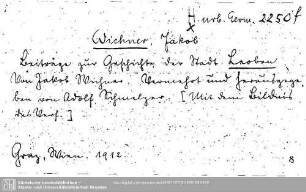 urb. Germ. 2250f
Wichner, Jakob
Beiträge zur Geschichte der Stadt Leoben
Von Jakob Wichner. Vermehrt und herausgege-
ben von Adolf Schmelzer. [Mit dem Bildnis
des Verf.]
Graz, Wien. 1912.
8